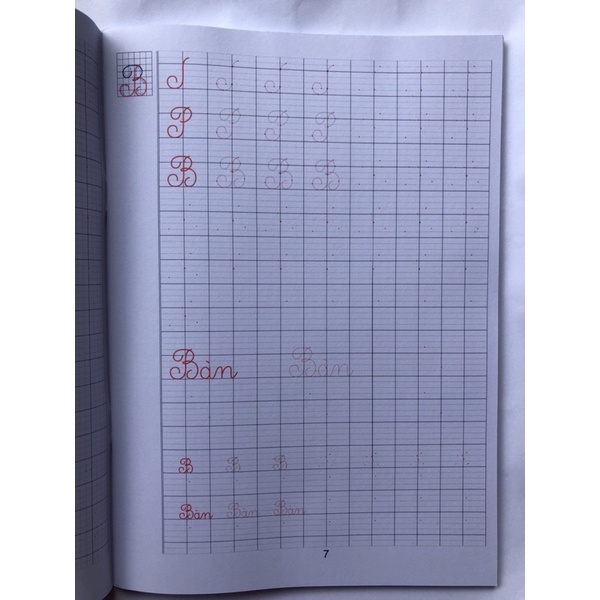 B
P P P P
B B B B
Bàn Bàn
B B B
Bàn Bàn Bàn
7